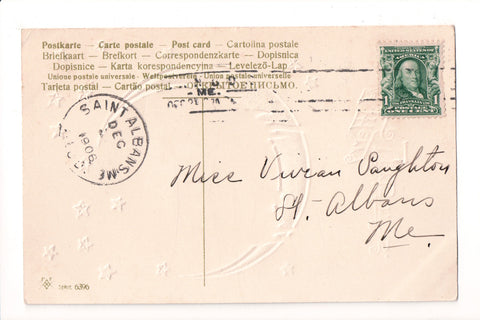 Postkarte — Carte postale — Post card — Cartolina postale
Briefkaart — Brefkort — Correspondenzkarte — Dopisnica
Dopisnice — Karta korespondencyjna — Levelező-Lap
Unione postale universale - Weltpostverein - Union postale universelle
Tarjeta postal — Cartão postal — ОТКРЫТОЕ ПИСЬМО.
ME.
SAINT ALBANS, ME.
DEC
1906
UNITED STATES OF AMERICA
1 1
ONE CENT
Miss Vivian Vaughton
St. Albans
Me.
6396